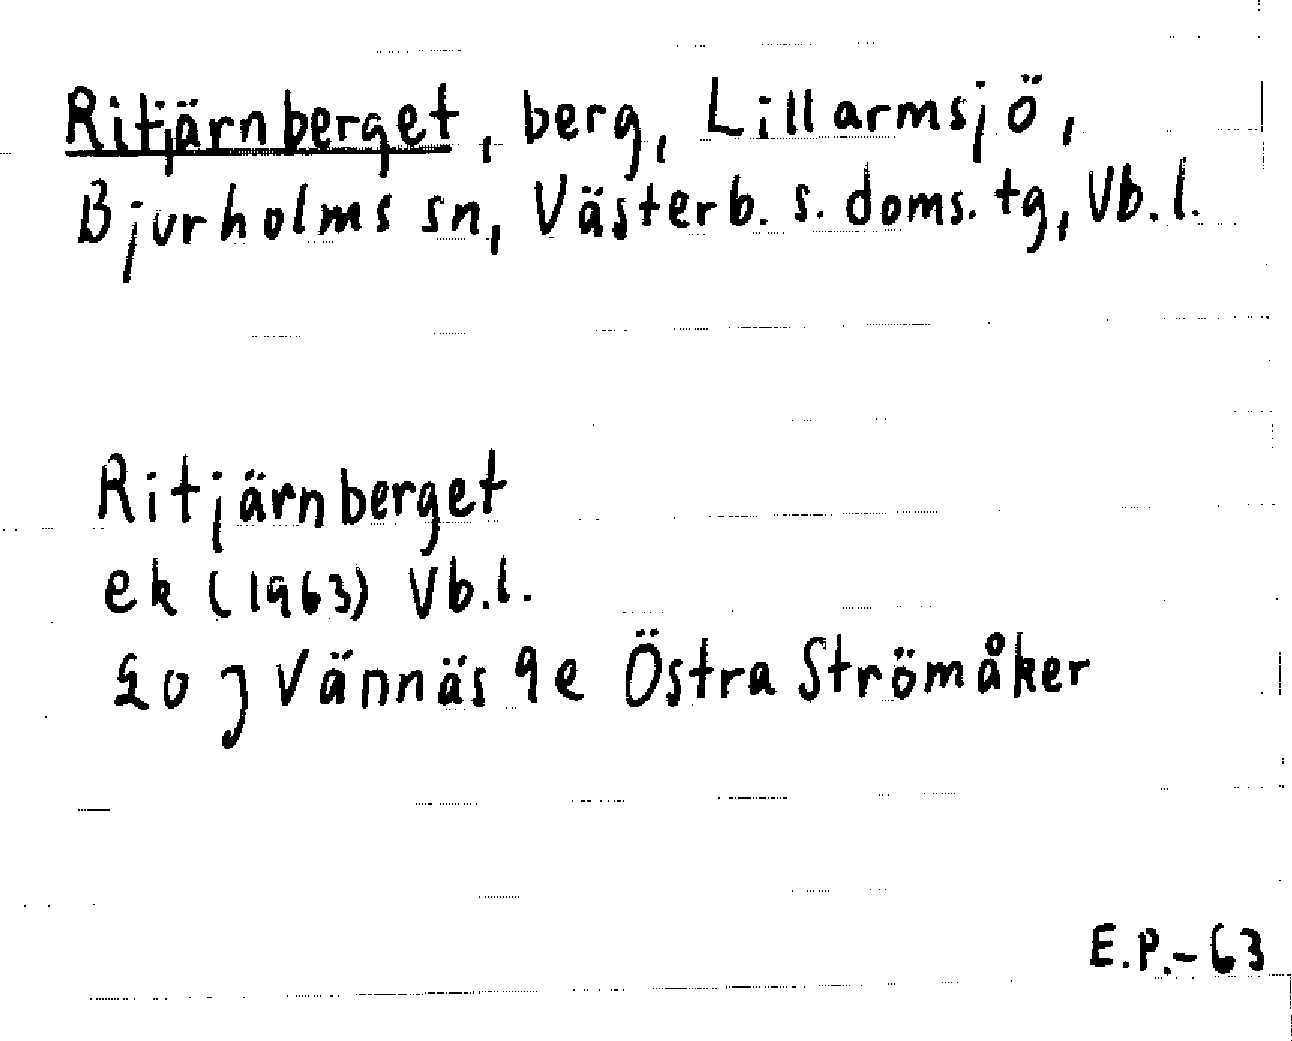 Ritjärnberget, berg, Lillarmsjö,
Bjurholms sn, Västerb. s. doms. tg, Vb.l.
Ritjärnberget
ek (1963) Vb.l.
20 J Vännäs 9e Östra Strömåker
E.P.-63